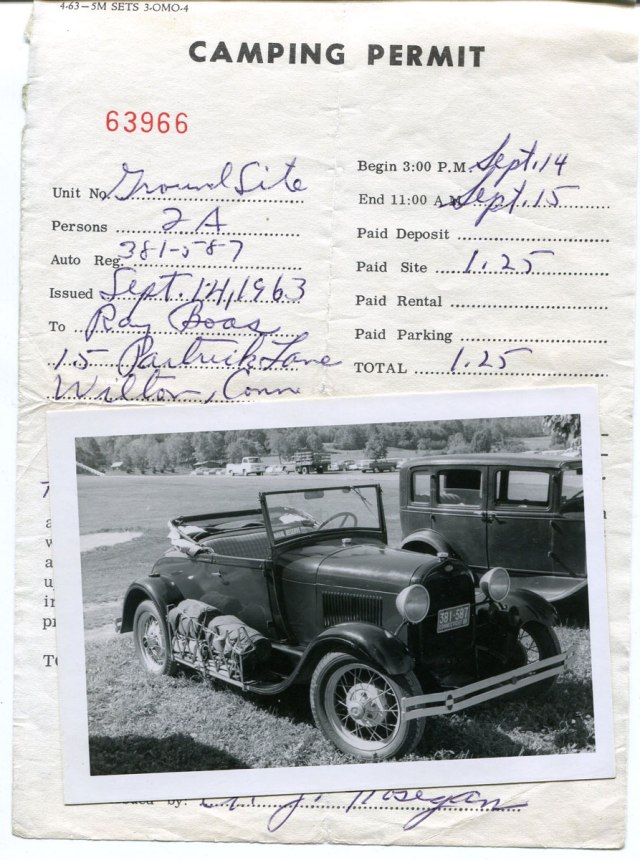 4-63—5M SETS 3-OMO-4
CAMPING PERMIT
63966
Unit No. Ground Site
Persons 2 A
Auto Reg. 381-587
Issued Sept. 14, 1963
To Ray Boas
15 Partrick Lane
Wilton, Conn
Begin 3:00 P.M. Sept. 14
End 11:00 A.M. Sept. 15
Paid Deposit
Paid Site 1.25
Paid Rental
Paid Parking
TOTAL 1.25
381-587
by: